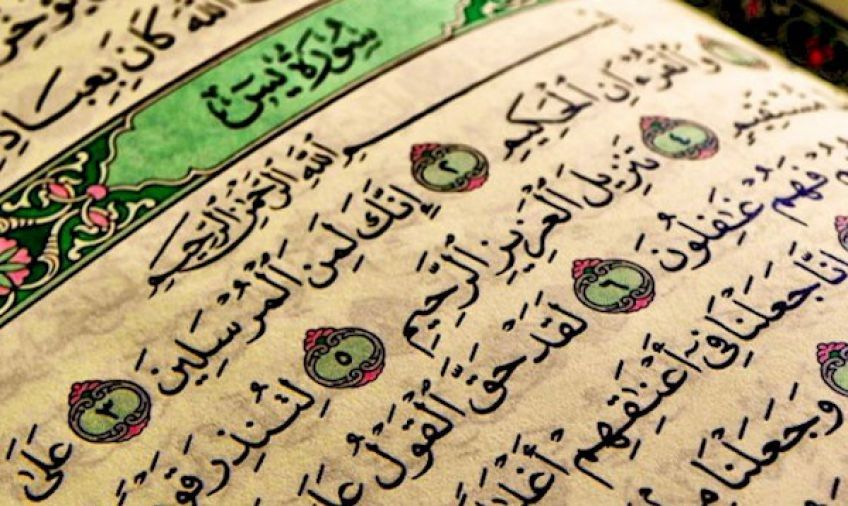 ٱللَّهَ كَانَ بِعِبَادِ
سُورَةُ يسٓ
بِسْمِ ٱللَّهِ ٱلرَّحْمَٰنِ ٱلرَّحِيمِ
وَٱلْقُرْءَانِ ٱلْحَكِيمِ ٢ إِنَّكَ لَمِنَ ٱلْمُرْسَلِينَ ٣ عَلَىٰ
مُّسْتَقِيمٍ ٤ تَنزِيلَ ٱلْعَزِيزِ ٱلرَّحِيمِ ٥ لِتُنذِرَ قَوْمًا
فَهُمْ غَٰفِلُونَ ٦ لَقَدْ حَقَّ ٱلْقَوْلُ عَلَىٰٓ
إِنَّا جَعَلْنَا فِىٓ أَعْنَٰقِهِمْ أَغْلَٰلًا
وَجَعَلْنَا